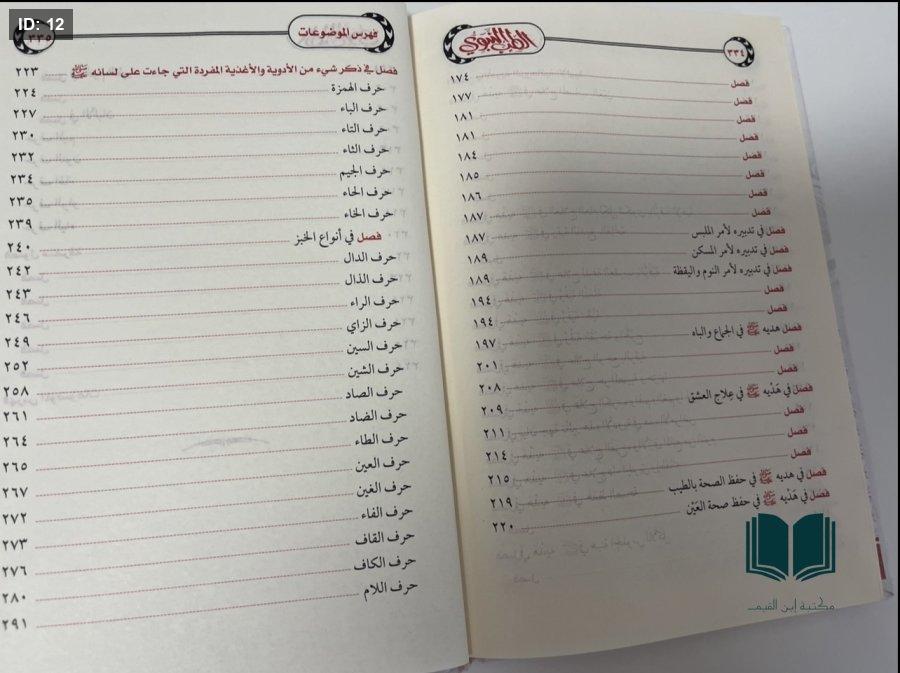 ID: 12
٣٣٤
الطب النبوي
فصل ١٧٤
فصل ١٧٧
فصل ١٨١
فصل ١٨١
فصل ١٨٤
فصل ١٨٥
فصل ١٨٦
فصل ١٨٧
فصل في تدبيره لأمر الملبس ١٨٧
فصل في تدبيره لأمر المسكن ١٨٩
فصل في تدبيره لأمر النوم واليقظة ١٨٩
فصل ١٩٤
فصل ١٩٤
فصل هديه ﷺ في الجماع والباه ١٩٧
فصل ٢٠١
فصل ٢٠٨
فصل في هَدْيه ﷺ في عِلاج العشق ٢٠٩
فصل ٢١١
فصل ٢١٤
فصل ٢١٥
فصل في هديه ﷺ في حفظ الصحة بالطيب ٢١٩
فصل في هَدْيه ﷺ في حفظ صحة العَيْن ٢٢٠
مكتبة ابن القيم
فهرس الموضوعات
٣٣٥
فصل في ذكر شيء من الأدوية والأغذية المفردة التي جاءت على لسانه ﷺ ٢٢٣
حرف الهمزة ٢٢٤
حرف الباء ٢٢٧
حرف التاء ٢٣٠
حرف الثاء ٢٣٢
حرف الجيم ٢٣٤
حرف الحاء ٢٣٥
حرف الخاء ٢٣٩
فصل في أنواع الخبز ٢٤٠
حرف الدال ٢٤٢
حرف الذال ٢٤٣
حرف الراء ٢٤٦
حرف الزاي ٢٤٩
حرف السين ٢٥٢
حرف الشين ٢٥٨
حرف الصاد ٢٦١
حرف الضاد ٢٦٤
حرف الطاء ٢٦٥
حرف العين ٢٦٧
حرف الغين ٢٧٢
حرف الفاء ٢٧٣
حرف القاف ٢٧٦
حرف الكاف ٢٨٠
حرف اللام ٢٩١